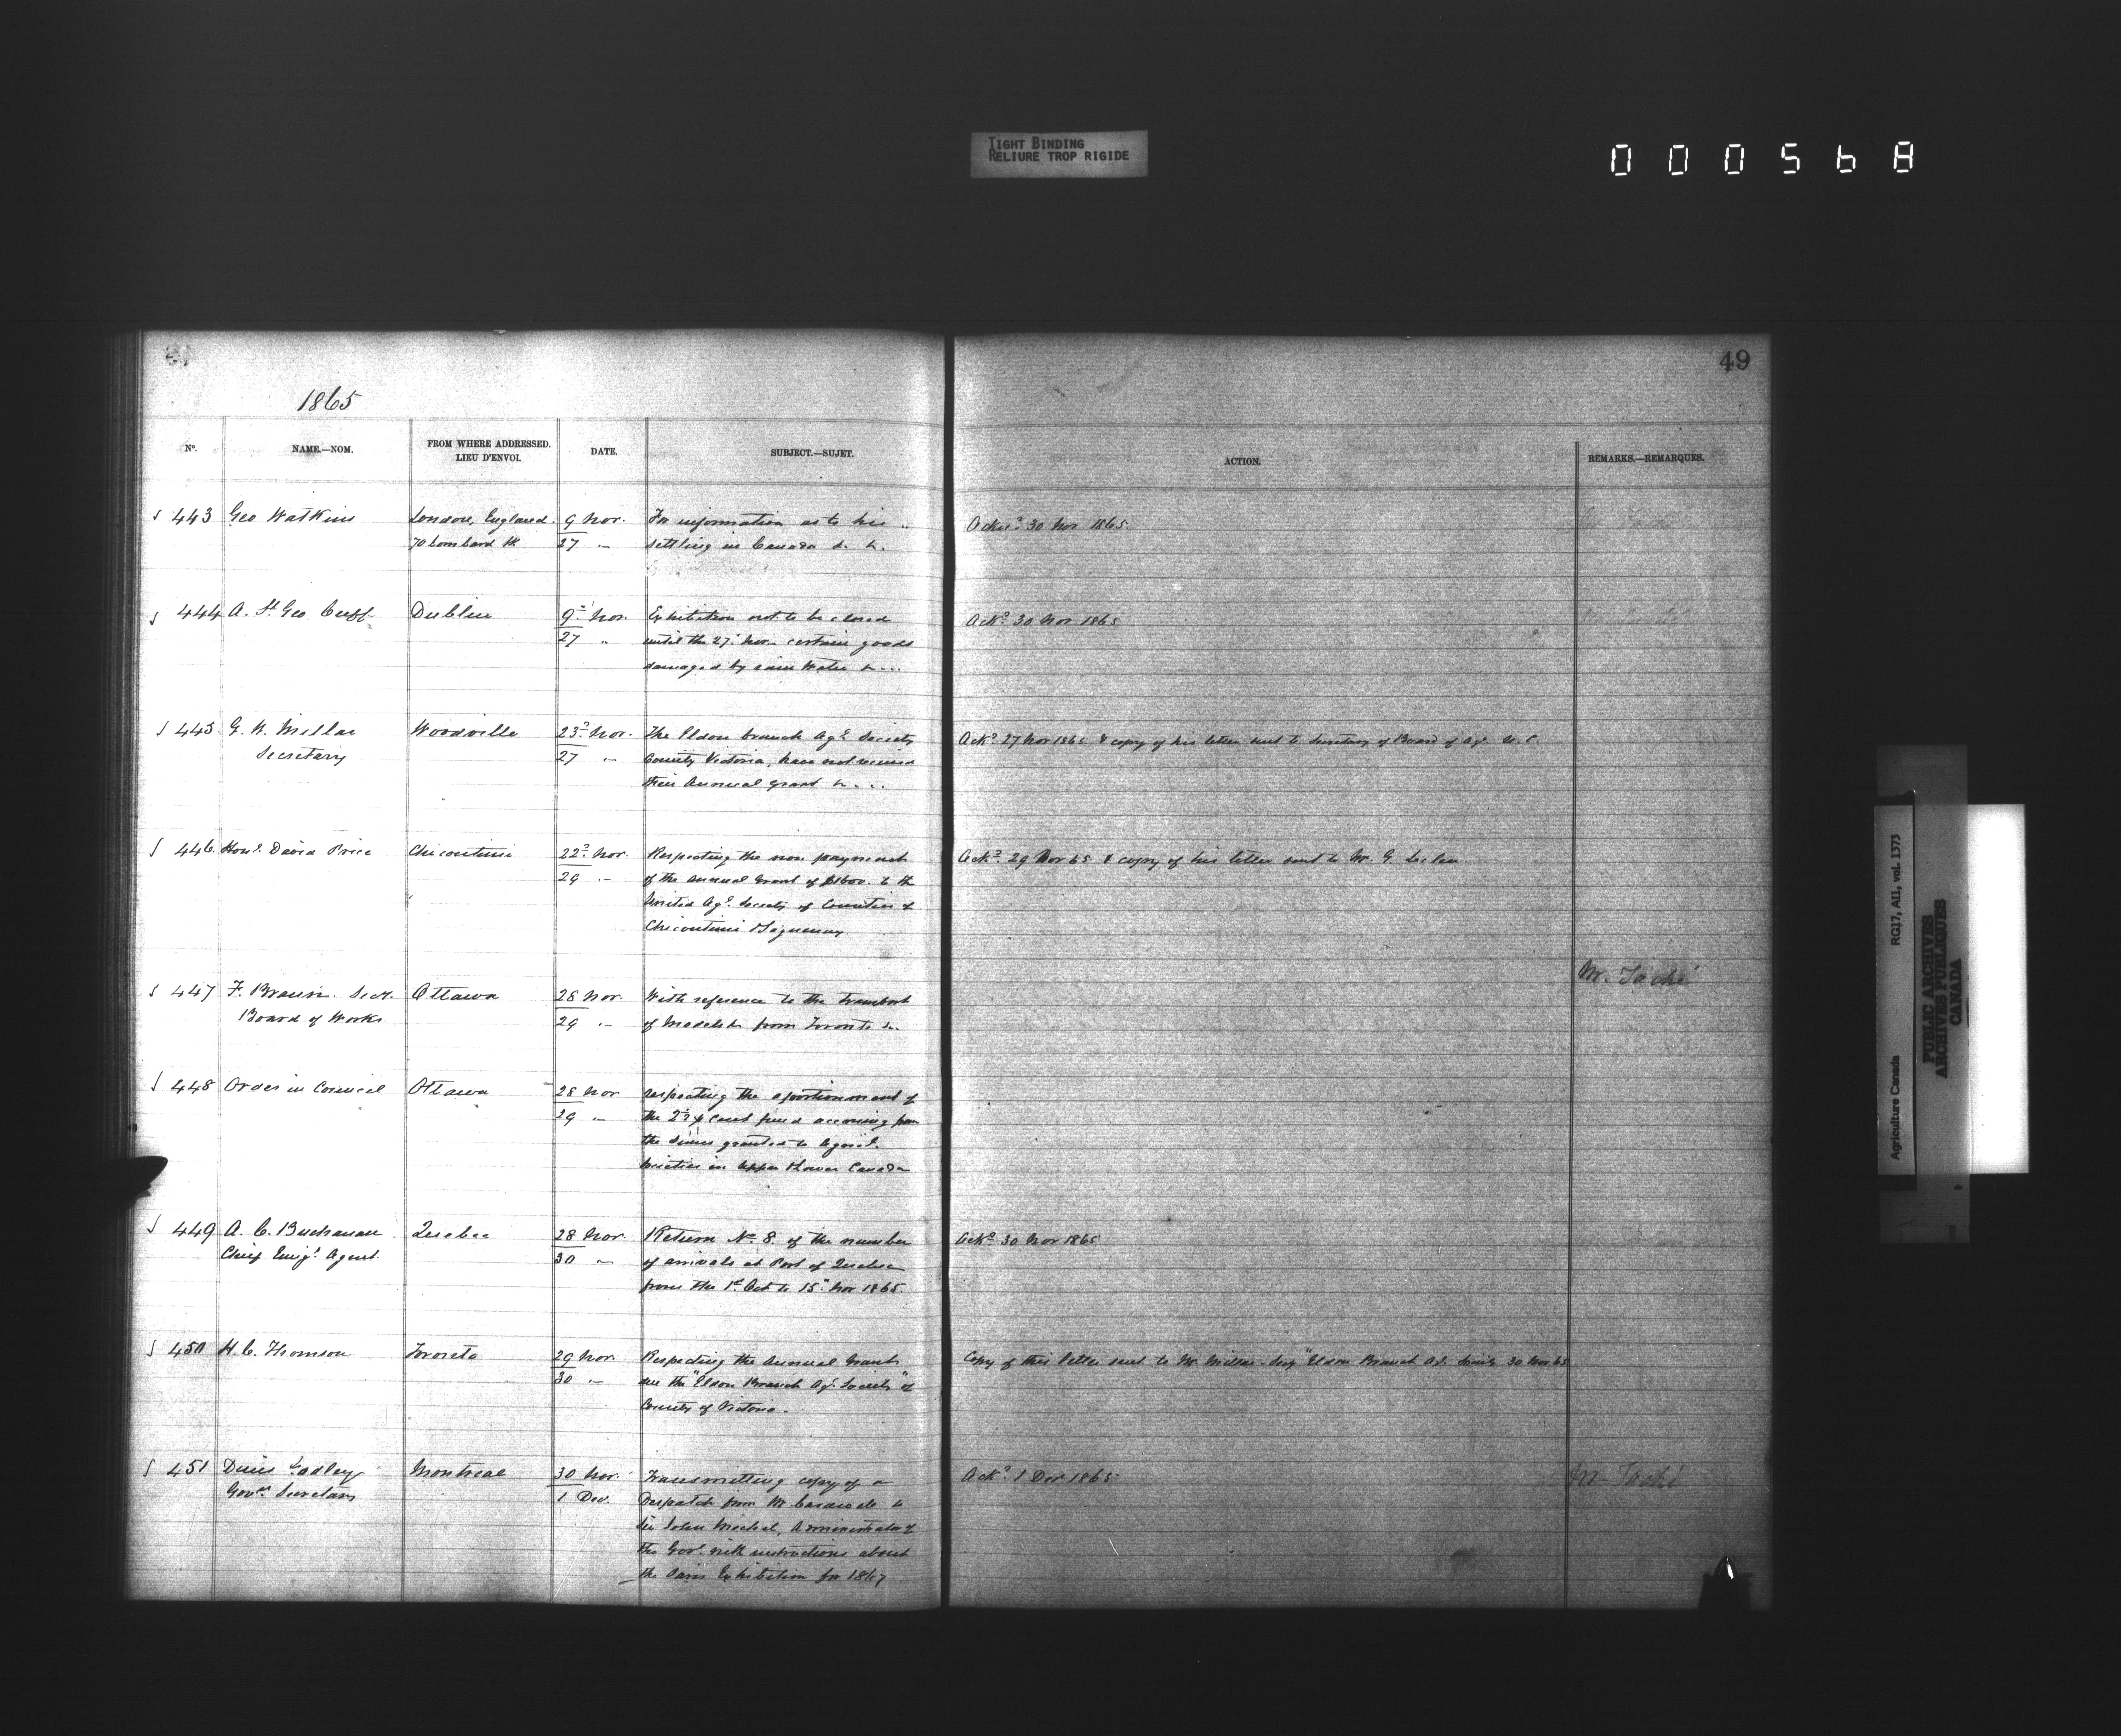 TIGHT BINDING
RELIURE TROP RIGIDE
000568
49
1865
No. NAME.—NOM. FROM WHERE ADDRESSED. LIEU D'ENVOI. DATE. SUBJECT.—SUJET. ACTION. REMARKS.—REMARQUES.
443 Geo Watkins London, England. 9 Nov. For information as to his Ackd. 30 Nov 1865.
70 Lombard St 27 " settling in Canada &. &.
444 A. St Geo Cuff Dublin 9th Nov. Exhibition not to be closed Ackd. 30 Nov 1865
27 " until the 27th Nov. certain goods
damaged by rain Water &...
445 G. W. Millar Woodville 23d Nov. The Eldon branch Agl. Society Ackd. 27 Nov 1865 & copy of his letter sent to Secretary of Board of Agr. U. C.
Secretary 27 " County Victoria, have not received
their Annual grant &...
446 Honl. David Price Chicoutimi 22d Nov. Respecting the non payment Ackd. 29 Nov 65 & copy of his letter sent to Mr. G. Leclere
29 " of the Annual Grant of $1600. to the
United Agl. Society of Counties of
Chicoutimi & Saguenay
Mr. Taché
447 F. Braun. Secy. Ottawa 28 Nov. With reference to the transport
Board of Works 29 " of Models from Toronto &.
448 Order in Council Ottawa 28 Nov respecting the aportionment of
29 " the cent fund accruing from
the sums granted to Agricl.
Societies in Upper & Lower Canada
449 A. C. Buchanan Quebec 28 Nov. Return No. 8. of the number Ackd. 30 Nov 1865
Chief Emigt. Agent 30 " of arrivals at Port of Quebec
from the 1st. Oct to 15th Nov 1865.
450 H. C. Thomson Toronto 29 Nov Respecting the Annual Grant Copy of this letter sent to Mr. Millar Secy "Eldon Branch Agl. Society 30 Nov 65
30 " the "Eldon Branch Agl. Society" of
County of Victoria.
451 Denis Godley Montreal 30 Nov. Transmitting copy of a Ackd. 1 Dec 1865 Mr Taché
Govr. Secretary 1 Dec. Despatch from Mr Cardwell to
Sir John Michel, Administrator of
the Govt. with instructions about
the Paris Exhibition for 1867
Agriculture Canada RG17, AII, vol. 1373
PUBLIC ARCHIVES
ARCHIVES PUBLIQUES
CANADA